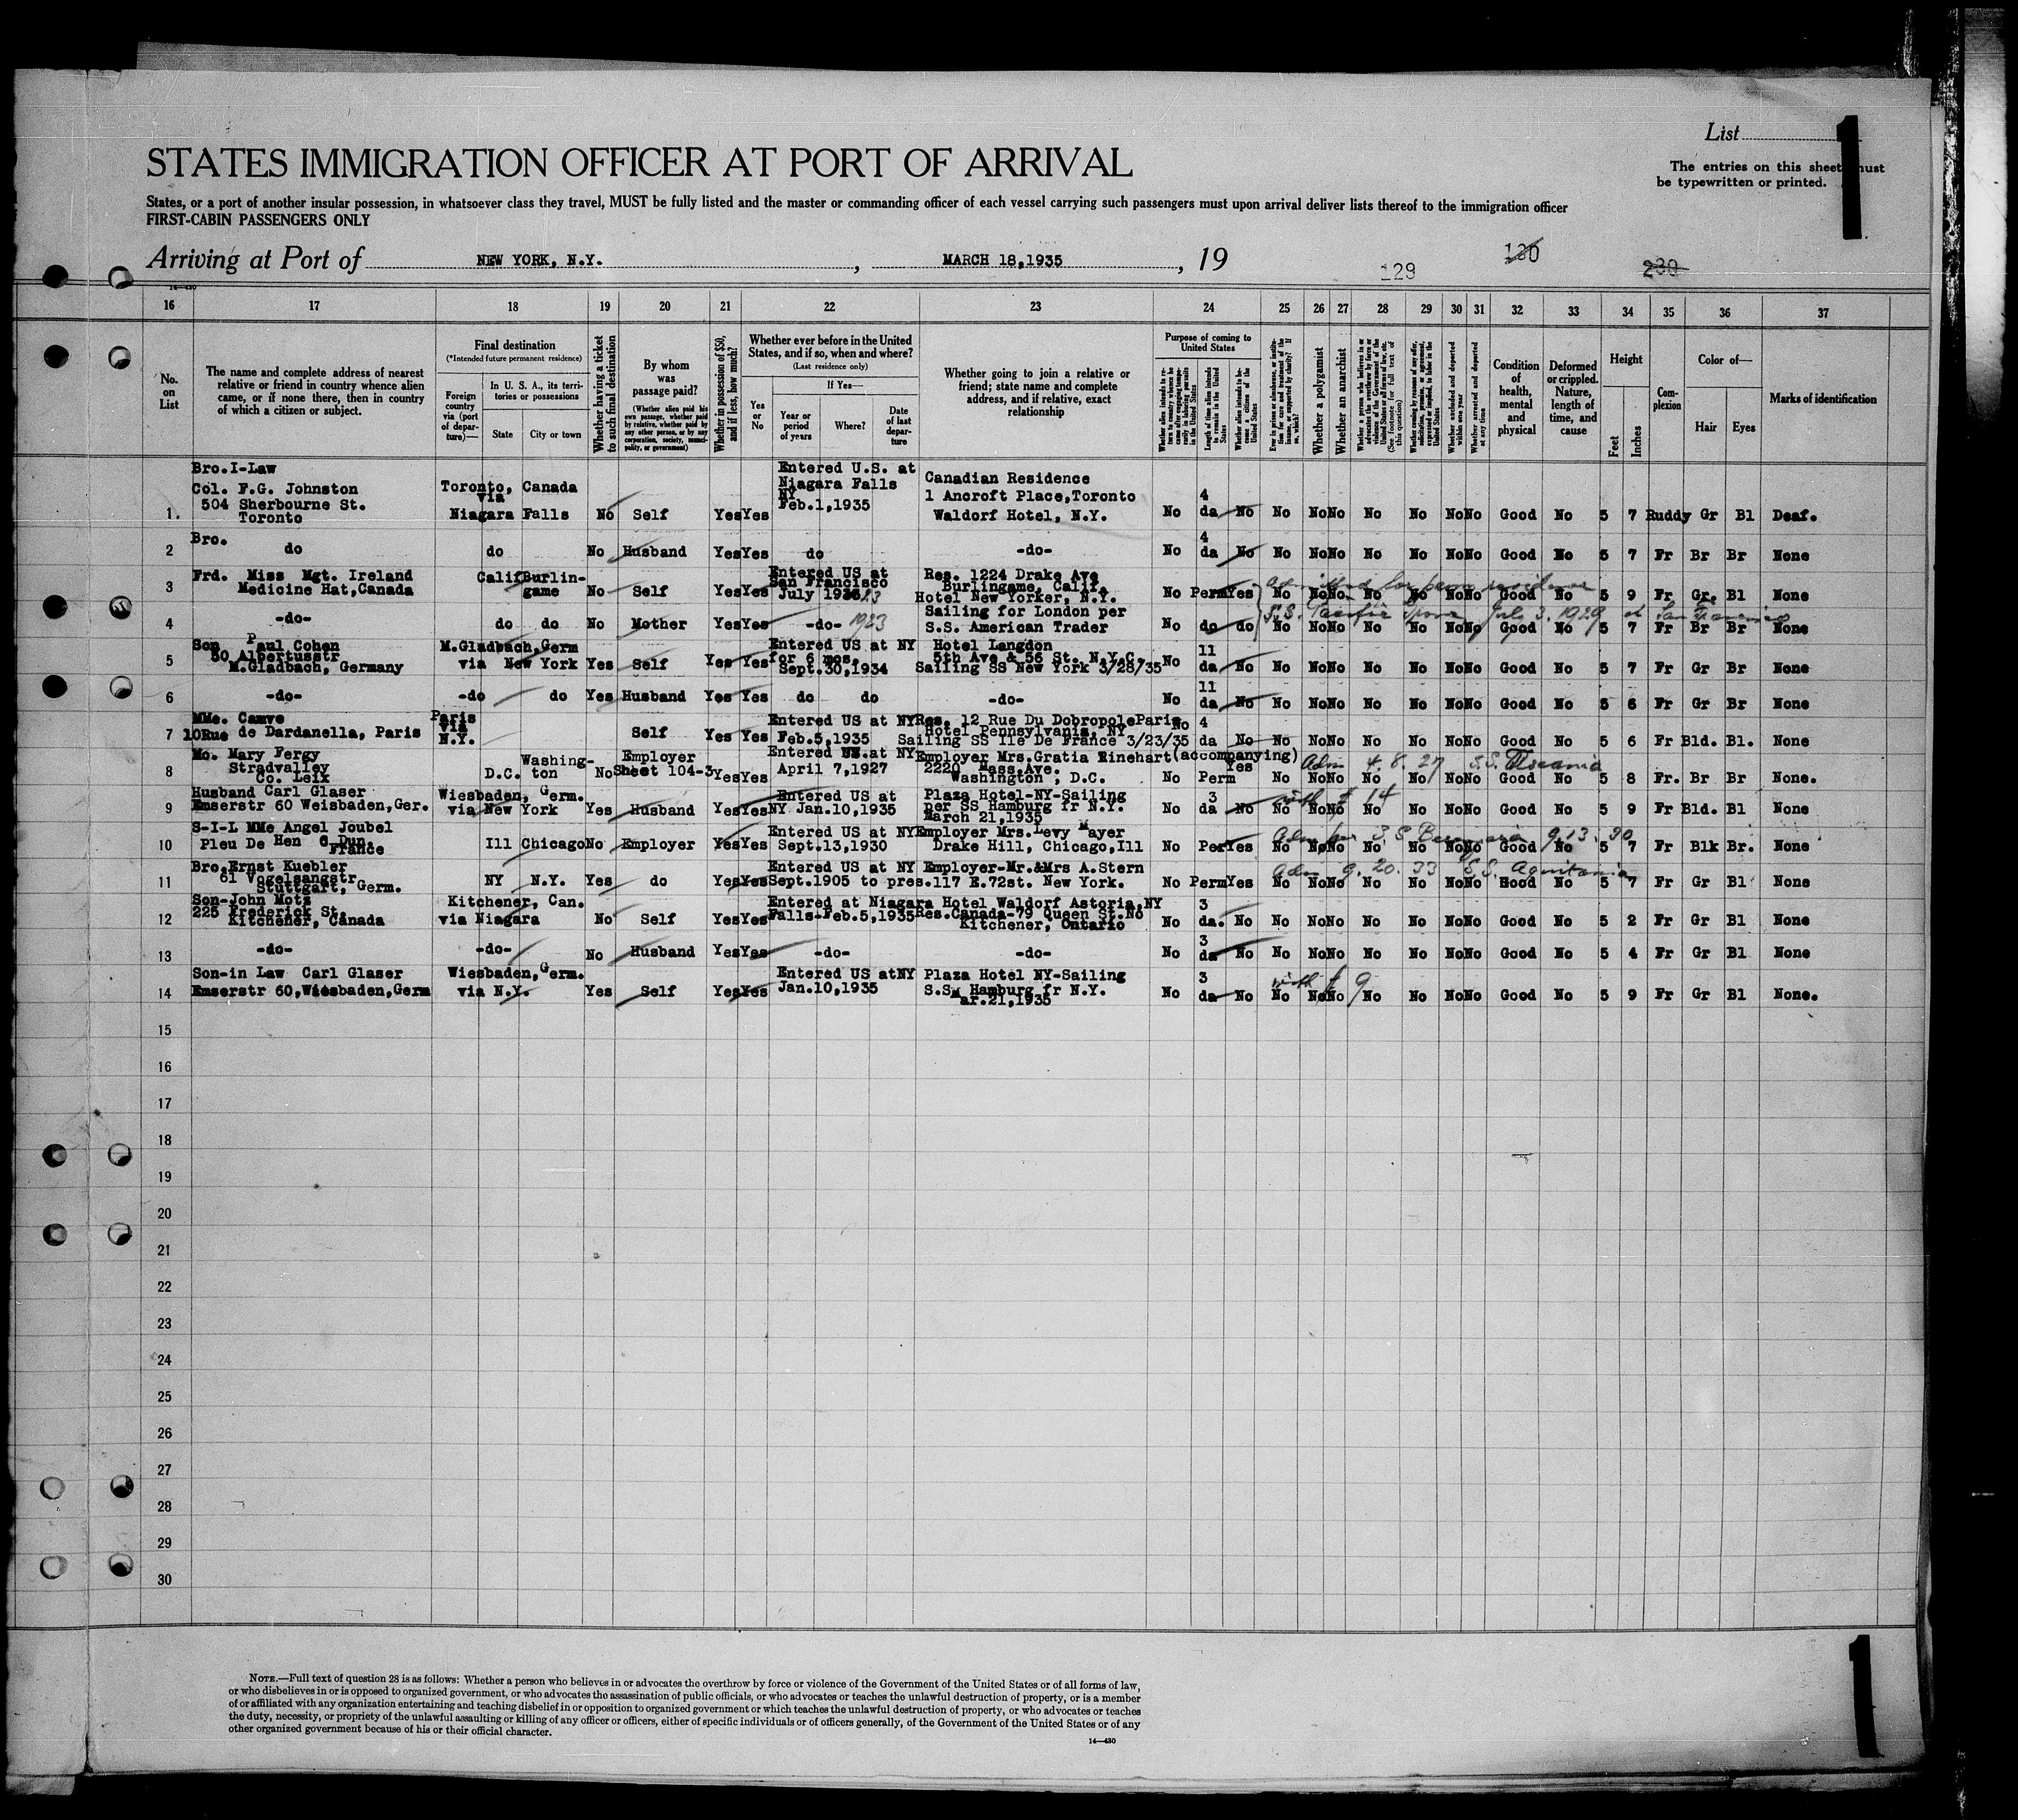 List 1
STATES IMMIGRATION OFFICER AT PORT OF ARRIVAL
The entries on this sheet must
be typewritten or printed.
States, or a port of another insular possession, in whatsoever class they travel, MUST be fully listed and the master or commanding officer of each vessel carrying such passengers must upon arrival deliver lists thereof to the immigration officer
FIRST-CABIN PASSENGERS ONLY
Arriving at Port of NEW YORK, N.Y., MARCH 18,1935, 19
129 130 230
14—430
16 17 18 19 20 21 22 23 24 25 26 27 28 29 30 31 32 33 34 35 36 37
No. on List
The name and complete address of nearest relative or friend in country whence alien came, or if none there, then in country of which a citizen or subject.
Final destination
(*Intended future permanent residence)
Foreign country via (port of departure)—
In U. S. A., its territories or possessions
State
City or town
Whether having a ticket to such final destination
By whom was passage paid?
(Whether alien paid his own passage, whether paid by relative, whether paid by any other person, or by any corporation, society, municipality, or government)
Whether in possession of $50, and if less, how much?
Whether ever before in the United States, and if so, when and where?
(Last residence only)
Yes or No
If Yes—
Year or period of years
Where?
Date of last departure
Whether going to join a relative or friend; state name and complete address, and if relative, exact relationship
Purpose of coming to United States
Length of time alien intends to remain in the United States
Whether alien intends to become a citizen of the United States
Whether a polygamist
Whether an anarchist
(See footnote for full text of this question)
Whether arrested and deported at any time
Condition of health, mental and physical
Deformed or crippled. Nature, length of time, and cause
Height
Feet
Inches
Complexion
Color of—
Hair
Eyes
Marks of identification
Bro.I-Law Entered U.S. at Canadian Residence
Col. F.G. Johnston Toronto, Canada Niagara Falls 1 Ancroft Place,Toronto 4
504 Sherbourne St. via NY
1. Toronto Niagara Falls No Self Yes Yes Feb.1,1935 Waldorf Hotel, N.Y. No da No No No No No No No No Good No 5 7 Ruddy Gr Bl Deaf.
Bro. 4
2 do do No Husband Yes Yes do -do- No da No No No No No No No No Good No 5 7 Fr Br Br None
Frd. Miss Mgt. Ireland Calif Burlin- Entered US at Res. 1224 Drake Ave
San Francisco Burlingame, Calif. Admitted for perm residence
3 Medicine Hat,Canada game No Self Yes Yes July Hotel New Yorker, N.Y. No Perm Yes No No No No No No No Good No 5 9 Fr Gr. Bl None
Sailing for London per S.S. July 3, 1929 at San Francisco
4 -do- do do No Mother Yes Yes -do- 1923 S.S. American Trader No do do No No No No No No No Good No 5 7 Fr Br Br None
Son Paul Cohen M.Gladbach,Germ Entered US at NY Hotel Langdon 11
50 Albertusstr for 6 mos. 5th Ave & 56 St. N.Y.C.
5 M.Gladbach, Germany via New York Yes Self Yes Yes Sept.30,1934 Sailing SS New York 3/28/35 No da No No No No No No No No Good No 5 7 Fr Gr Br None
11
6 -do- -do do Yes Husband Yes Yes do do -do- No da No No No No No No No No Good No 5 6 Fr Gr Br None
MMe. Camve Paris Entered US at NY Res. 12 Rue Du Dobropole Paris 4
via Hotel Pennsylvania, NY
7 10Rue de Dardanella, Paris N.Y. Self Yes Yes Feb.5,1935 Sailing SS Ile De France 3/23/35 No da No No No No No No No No Good No 5 6 Fr Bld. Bl. None
Mo. Mary Fergy Washing- Employer Entered US.at NY Employer Mrs.Gratia Rinehart(accompanying)
Stradvalley 2220 Mass.Ave. Yes Adm 4. 8. 27 S.S. Tuscania
8 Co. Leix D.C. ton No Sheet 104-3 Yes Yes April 7,1927 Washington , D.C. No Perm No No No No No No No Good No 5 8 Fr. Br Br None.
Husband Carl Glaser Wiesbaden, Germ. Entered US at Plaza Hotel-NY-Sailing 3 with # 14
per SS Hamburg fr N.Y.
9 Emserstr 60 Weisbaden,Ger. via New York Yes Husband Yes Yes NY Jan.10,1935 March 21,1935 No da No No No No No No No No Good No 5 9 Fr Bld. Bl None
S-I-L MMe Angel Joubel Entered US at NY Employer Mrs.Levy Mayer Adm per S.S. Berengaria 9. 13. 30
10 Pleu De Hen C Dun. France Ill Chicago No Employer Yes Yes Sept.13,1930 Drake Hill, Chicago,Ill No Per Yes No No No No No No No Good No 5 7 Fr Blk Br. None
Bro,Ernst Kuebler Entered US at NY Employer-Mr.&Mrs A.Stern Adm 9. 20. 33 S.S. Aquitania
61 Vogelsangstr
11 Stuttgart, Germ. NY N.Y. Yes do Yes Yes Sept.1905 to pres. 117 E.72st. New York. No Perm Yes No No No No No No No Good No 5 7 Fr Gr Bl None
Son-John Motz Kitchener, Can. Entered at Niagara Hotel Waldorf Astoria,NY 3
225 Frederick St. Falls-Feb.5,1935 Res.Canada-79 Queen St.No
12 Kitchener, Canada via Niagara No Self Yes Yes Kitchener, Ontario No da. No No No No No No No No Good No 5 2 Fr Gr Bl None
3
13 -do- -do- No Husband Yes Yes -do- -do- No da No No No No No No No No Good No 5 4 Fr Gr Bl None
Son-in Law Carl Glaser Wiesbaden,Germ. Entered US atNY Plaza Hotel NY-Sailing 3 with # 9
S.S. Hamburg fr N.Y.
14 Emserstr 60,Wiesbaden,Germ via N.Y. Yes Self Yes Yes Jan.10,1935 Mar.21,1935 No da No No No No No No No No Good No 5 9 Fr Gr Bl None.
15
16
17
18
19
20
21
22
23
24
25
26
27
28
29
30
NOTE.—Full text of question 28 is as follows: Whether a person who believes in or advocates the overthrow by force or violence of the Government of the United States or of all forms of law,
or who disbelieves in or is opposed to organized government, or who advocates the assassination of public officials, or who advocates or teaches the unlawful destruction of property, or is a member
of or affiliated with any organization entertaining and teaching disbelief in or opposition to organized government or which teaches the unlawful destruction of property, or who advocates or teaches
the duty, necessity, or propriety of the unlawful assaulting or killing of any officer or officers, either of specific individuals or of officers generally, of the Government of the United States or of any
other organized government because of his or their official character.
14—430
1